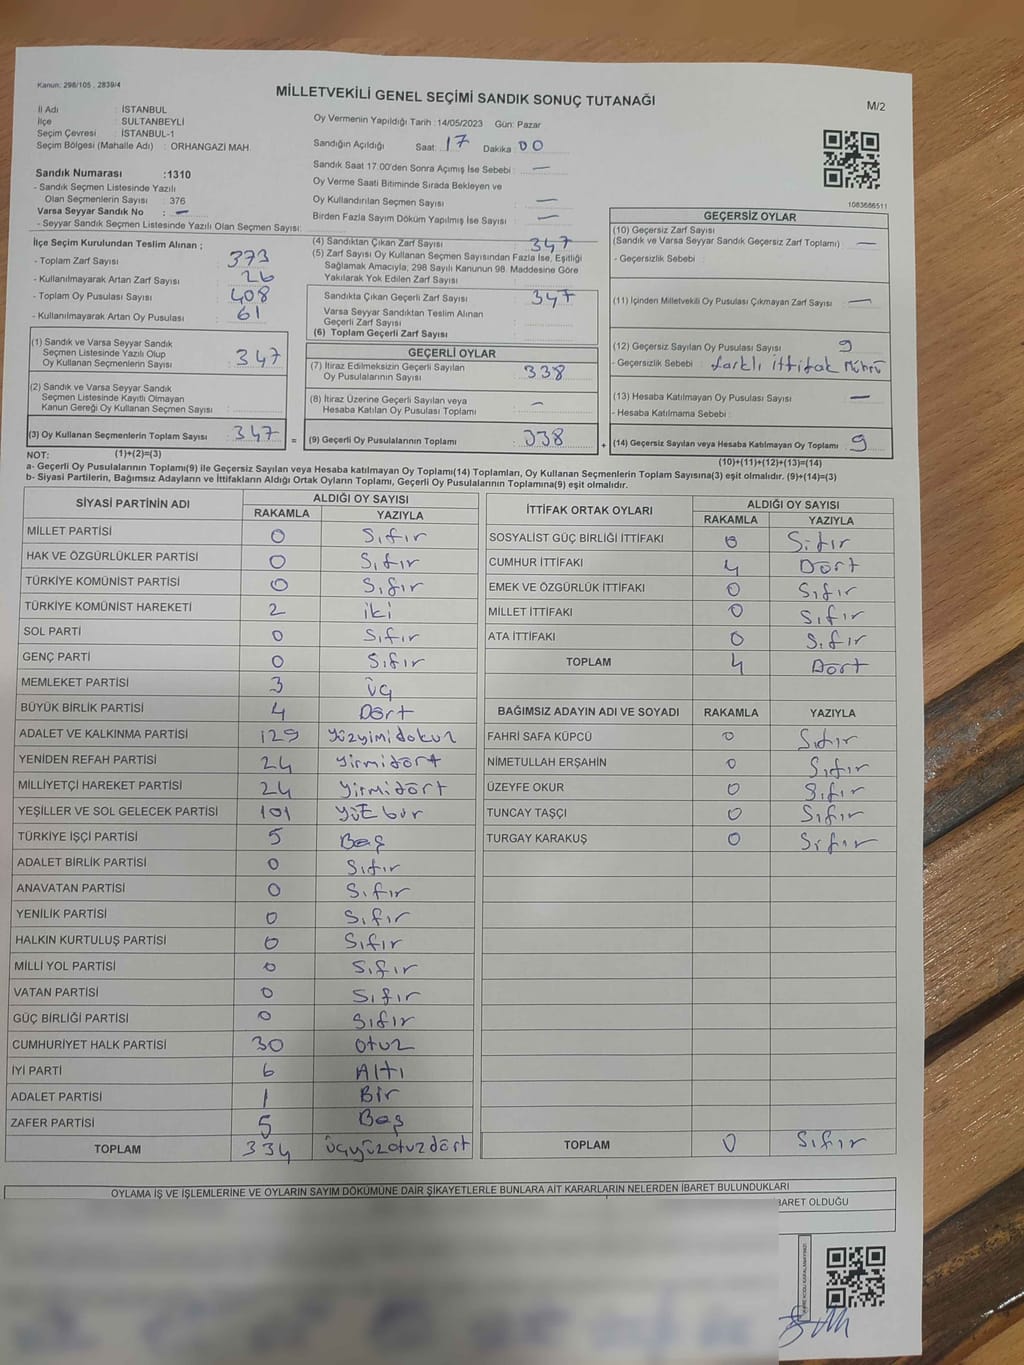 Kanun: 298/105 , 2839/4
MİLLETVEKİLİ GENEL SEÇİMİ SANDIK SONUÇ TUTANAĞI
M/2
İl Adı : İSTANBUL
İlçe : SULTANBEYLİ
Seçim Çevresi : İSTANBUL-1
Seçim Bölgesi (Mahalle Adı) : ORHANGAZİ MAH.
Sandık Numarası :1310
- Sandık Seçmen Listesinde Yazılı
Olan Seçmenlerin Sayısı : 376
Varsa Seyyar Sandık No : —
- Seyyar Sandık Seçmen Listesinde Yazılı Olan Seçmen Sayısı:
Oy Vermenin Yapıldığı Tarih :14/05/2023 Gün: Pazar
Sandığın Açıldığı Saat: 17 Dakika: 00
Sandık Saat 17:00'den Sonra Açımış İse Sebebi : —
Oy Verme Saati Bitiminde Sırada Bekleyen ve
Oy Kullandırılan Seçmen Sayısı : —
Birden Fazla Sayım Döküm Yapılmış İse Sayısı : —
1083686511
İlçe Seçim Kurulundan Teslim Alınan ;
- Toplam Zarf Sayısı : 373
- Kullanılmayarak Artan Zarf Sayısı : 26
- Toplam Oy Pusulası Sayısı : 408
- Kullanılmayarak Artan Oy Pusulası : 61
(1) Sandık ve Varsa Seyyar Sandık
Seçmen Listesinde Yazılı Olup
Oy Kullanan Seçmenlerin Sayısı : 347
(2) Sandık ve Varsa Seyyar Sandık
Seçmen Listesinde Kayıtlı Olmayan
Kanun Gereği Oy Kullanan Seçmen Sayısı :
(3) Oy Kullanan Seçmenlerin Toplam Sayısı : 347 =
(1)+(2)=(3)
(4) Sandıktan Çıkan Zarf Sayısı : 347
(5) Zarf Sayısı Oy Kullanan Seçmen Sayısından Fazla İse, Eşitliği
Sağlamak Amacıyla, 298 Sayılı Kanunun 98. Maddesine Göre
Yakılarak Yok Edilen Zarf Sayısı :
Sandıkta Çıkan Geçerli Zarf Sayısı : 347
Varsa Seyyar Sandıktan Teslim Alınan
Geçerli Zarf Sayısı :
(6) Toplam Geçerli Zarf Sayısı :
GEÇERLİ OYLAR
(7) İtiraz Edilmeksizin Geçerli Sayılan
Oy Pusulalarının Sayısı : 338
(8) İtiraz Üzerine Geçerli Sayılan veya
Hesaba Katılan Oy Pusulası Toplamı : —
(9) Geçerli Oy Pusulalarının Toplamı : 338 +
GEÇERSİZ OYLAR
(10) Geçersiz Zarf Sayısı
(Sandık ve Varsa Seyyar Sandık Geçersiz Zarf Toplamı) : —
- Geçersizlik Sebebi :
(11) İçinden Milletvekili Oy Pusulası Çıkmayan Zarf Sayısı : —
(12) Geçersiz Sayılan Oy Pusulası Sayısı : 9
- Geçersizlik Sebebi : farklı ittifak Mührü
(13) Hesaba Katılmayan Oy Pusulası Sayısı : —
- Hesaba Katılmama Sebebi :
(14) Geçersiz Sayılan veya Hesaba Katılmayan Oy Toplamı : 9
(10)+(11)+(12)+(13)=(14)
NOT:
a- Geçerli Oy Pusulalarının Toplamı(9) ile Geçersiz Sayılan veya Hesaba katılmayan Oy Toplamı(14) Toplamları, Oy Kullanan Seçmenlerin Toplam Sayısına(3) eşit olmalıdır. (9)+(14)=(3)
b- Siyasi Partilerin, Bağımsız Adayların ve İttifakların Aldığı Ortak Oyların Toplamı, Geçerli Oy Pusulalarının Toplamına(9) eşit olmalıdır.
SİYASİ PARTİNİN ADI ALDIĞI OY SAYISI
RAKAMLA YAZIYLA
MİLLET PARTİSİ 0 Sıfır
HAK VE ÖZGÜRLÜKLER PARTİSİ 0 Sıfır
TÜRKİYE KOMÜNİST PARTİSİ 0 Sıfır
TÜRKİYE KOMÜNİST HAREKETİ 2 iki
SOL PARTİ 0 Sıfır
GENÇ PARTİ 0 Sıfır
MEMLEKET PARTİSİ 3 üç
BÜYÜK BİRLİK PARTİSİ 4 Dört
ADALET VE KALKINMA PARTİSİ 129 yüzyimidokuz
YENİDEN REFAH PARTİSİ 24 yirmidört
MİLLİYETÇİ HAREKET PARTİSİ 24 yirmidört
YEŞİLLER VE SOL GELECEK PARTİSİ 101 yüz bir
TÜRKİYE İŞÇİ PARTİSİ 5 Beş
ADALET BİRLİK PARTİSİ 0 Sıfır
ANAVATAN PARTİSİ 0 Sıfır
YENİLİK PARTİSİ 0 Sıfır
HALKIN KURTULUŞ PARTİSİ 0 Sıfır
MİLLİ YOL PARTİSİ 0 Sıfır
VATAN PARTİSİ 0 Sıfır
GÜÇ BİRLİĞİ PARTİSİ 0 Sıfır
CUMHURİYET HALK PARTİSİ 30 otuz
İYİ PARTİ 6 Altı
ADALET PARTİSİ 1 Bir
ZAFER PARTİSİ 5 Beş
TOPLAM 334 üçyüzotuzdört
İTTİFAK ORTAK OYLARI ALDIĞI OY SAYISI
RAKAMLA YAZIYLA
SOSYALİST GÜÇ BİRLİĞİ İTTİFAKI 0 Sıfır
CUMHUR İTTİFAKI 4 Dört
EMEK VE ÖZGÜRLÜK İTTİFAKI 0 Sıfır
MİLLET İTTİFAKI 0 Sıfır
ATA İTTİFAKI 0 Sıfır
TOPLAM 4 Dört
BAĞIMSIZ ADAYIN ADI VE SOYADI RAKAMLA YAZIYLA
FAHRİ SAFA KÜPCÜ 0 Sıfır
NİMETULLAH ERŞAHİN 0 Sıfır
ÜZEYFE OKUR 0 Sıfır
TUNCAY TAŞÇI 0 Sıfır
TURGAY KARAKUŞ 0 Sıfır
TOPLAM 0 Sıfır
OYLAMA İŞ VE İŞLEMLERİNE VE OYLARIN SAYIM DÖKÜMÜNE DAİR ŞİKAYETLERLE BUNLARA AİT KARARLARIN NELERDEN İBARET BULUNDUKLARI
BARET OLDUĞU